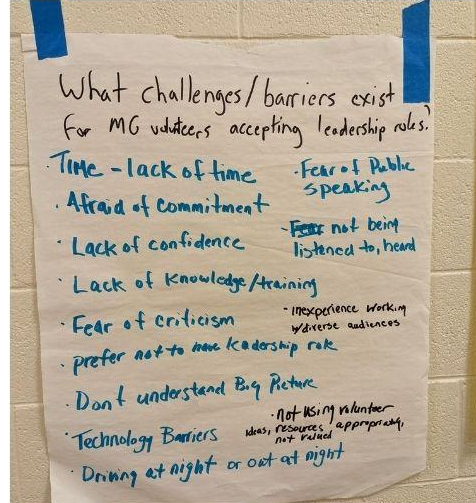 What challenges/barriers exist
for MG volunteers accepting leadership roles?
· Time - lack of time
· Afraid of commitment
· Lack of confidence
· Lack of knowledge/training
· Fear of criticism
· prefer not to have leadership role
· Don't understand Big Picture
· Technology Barriers
· Driving at night or out at night
· Fear of Public
speaking
- Fear not being
listened to, heard
· inexperience working
w/diverse audiences
· not using volunteer
ideas, resources appropriately,
not valued